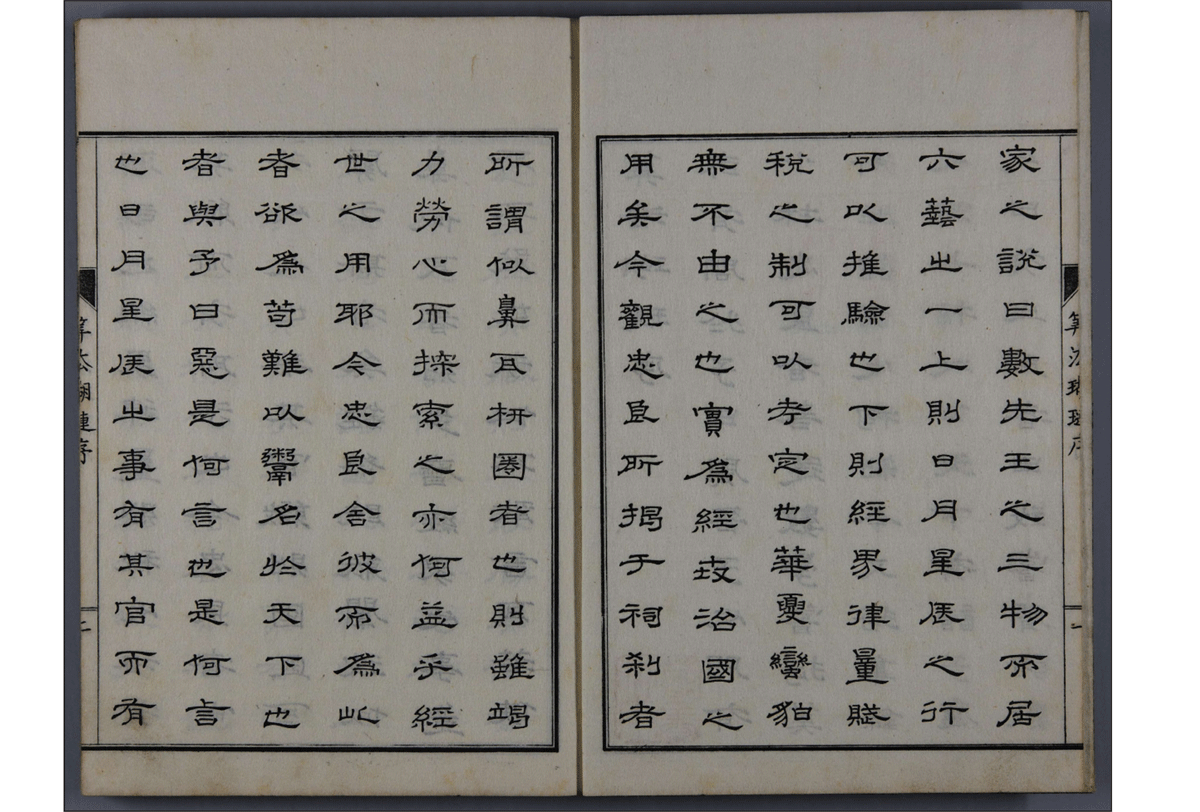 家之說曰數先王之三物而居
六藝之一上則日月星辰之行
可以推驗也下則經界律量賦
稅之制可以考定也華夏蠻貊
無不由之也實爲經世治國之
用矣今觀忠良所揭于祠刹者
算法瑚璉序
一
所謂似鼻耳枅圈者也則雖竭
力勞心而探索之亦何益乎經
世之用耶今忠良舍彼而爲此
者欲爲苟難以鬻名於天下也
者與予曰惡是何言也是何言
也日月星辰之事有其官而有
算法瑚璉序
二